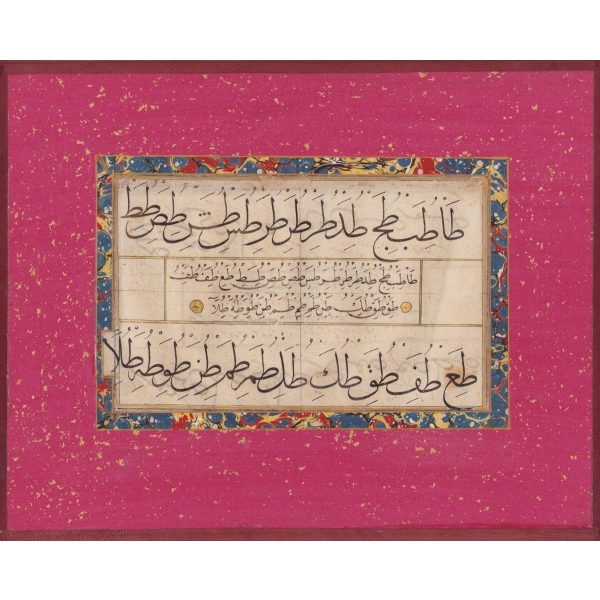 طا طب طج طد طر طر طر طس طس طص طط
طا طب طج طد طر طر طر طس طص طص طط طع طف طف
طق طك طم طن طو طه طلا
طع طف طق طك طل طم طم طن طو طه طلا